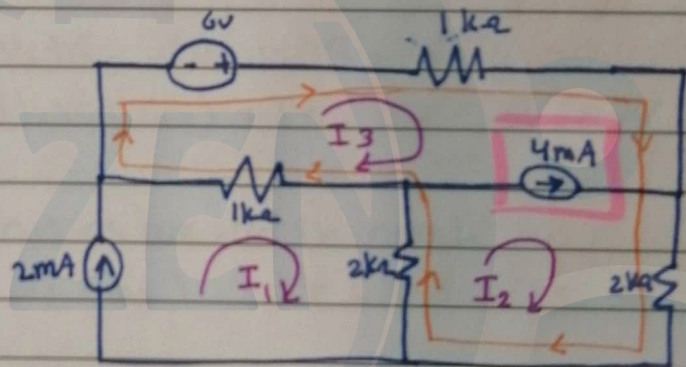 6V 1kΩ
I3
4mA
1kΩ
2mA I1 2kΩ I2 2kΩ
ZEN